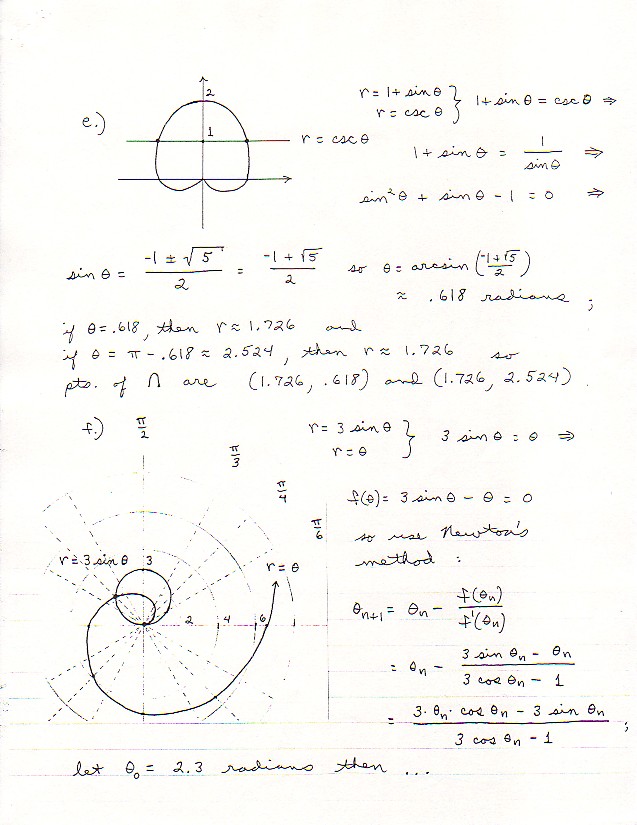 e.)
2
1
r = csc θ
r = 1 + sin θ
r = csc θ
} 1 + sin θ = csc θ ⇒
1 + sin θ = 1/sin θ ⇒
sin²θ + sin θ - 1 = 0 ⇒
sin θ = (-1 ± √5)/2 = (-1 + √5)/2 so θ = arcsin((-1+√5)/2)
≈ .618 radians ;
if θ = .618, then r ≈ 1.726 and
if θ = π - .618 ≈ 2.524, then r ≈ 1.726 so
pts. of ∩ are (1.726, .618) and (1.726, 2.524).
f.)
π/2
π/3
π/4
π/6
r = 3 sin θ
3
r = θ
2 4 6
r = 3 sin θ
r = θ
} 3 sin θ = θ ⇒
f(θ) = 3 sin θ - θ = 0
so use Newton's
method :
θₙ₊₁ = θₙ - f(θₙ)/f'(θₙ)
= θₙ - (3 sin θₙ - θₙ)/(3 cos θₙ - 1)
= (3·θₙ·cos θₙ - 3 sin θₙ)/(3 cos θₙ - 1) ;
let θ₀ = 2.3 radians then ...